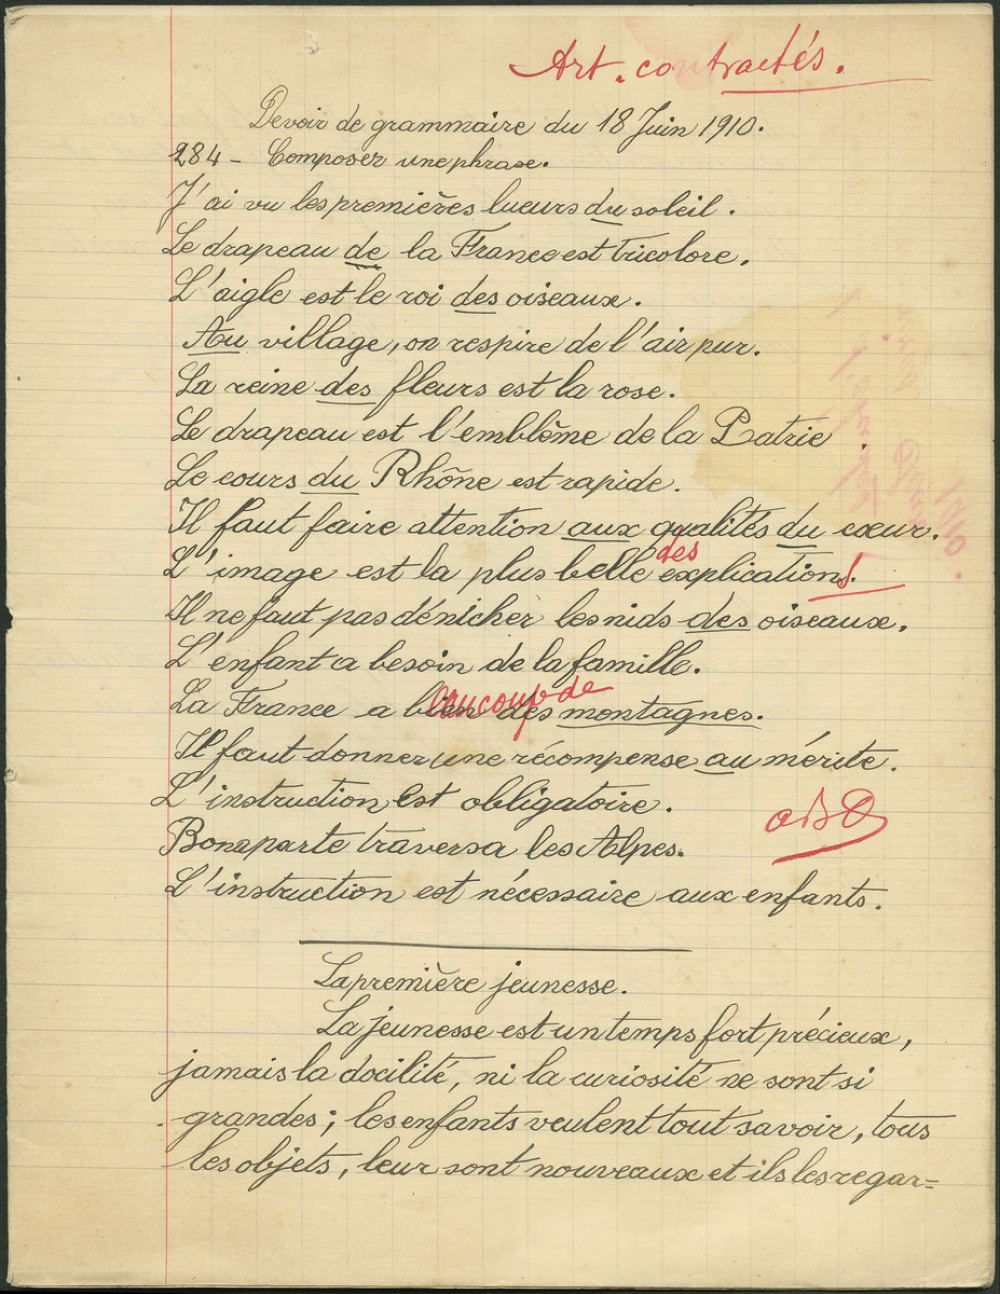 Art. contractés.
Devoir de grammaire du 18 Juin 1910.
284 - Composer une phrase.
J'ai vu les premières lueurs du soleil.
Le drapeau de la France est tricolore.
L'aigle est le roi des oiseaux.
Au village, on respire de l'air pur.
La reine des fleurs est la rose.
Le drapeau est l'emblême de la Patrie.
Le cours du Rhône est rapide.
Il faut faire attention aux qualités du cœur.
des
L'image est la plus belle explications.
Il ne faut pas dénicher les nids des oiseaux.
L'enfant a besoin de la famille.
beaucoup de
La France a bien des montagnes.
Il faut donner une récompense au mérite.
L'instruction est obligatoire.
Bonaparte traversa les Alpes.
L'instruction est nécessaire aux enfants.
La première jeunesse.
La jeunesse est un temps fort précieux,
jamais la docilité, ni la curiosité ne sont si
grandes; les enfants veulent tout savoir, tous
les objets, leur sont nouveaux et ils les regar=